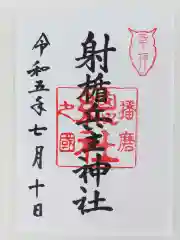 射楯兵主神社
播磨
之國
令和五年七月十日